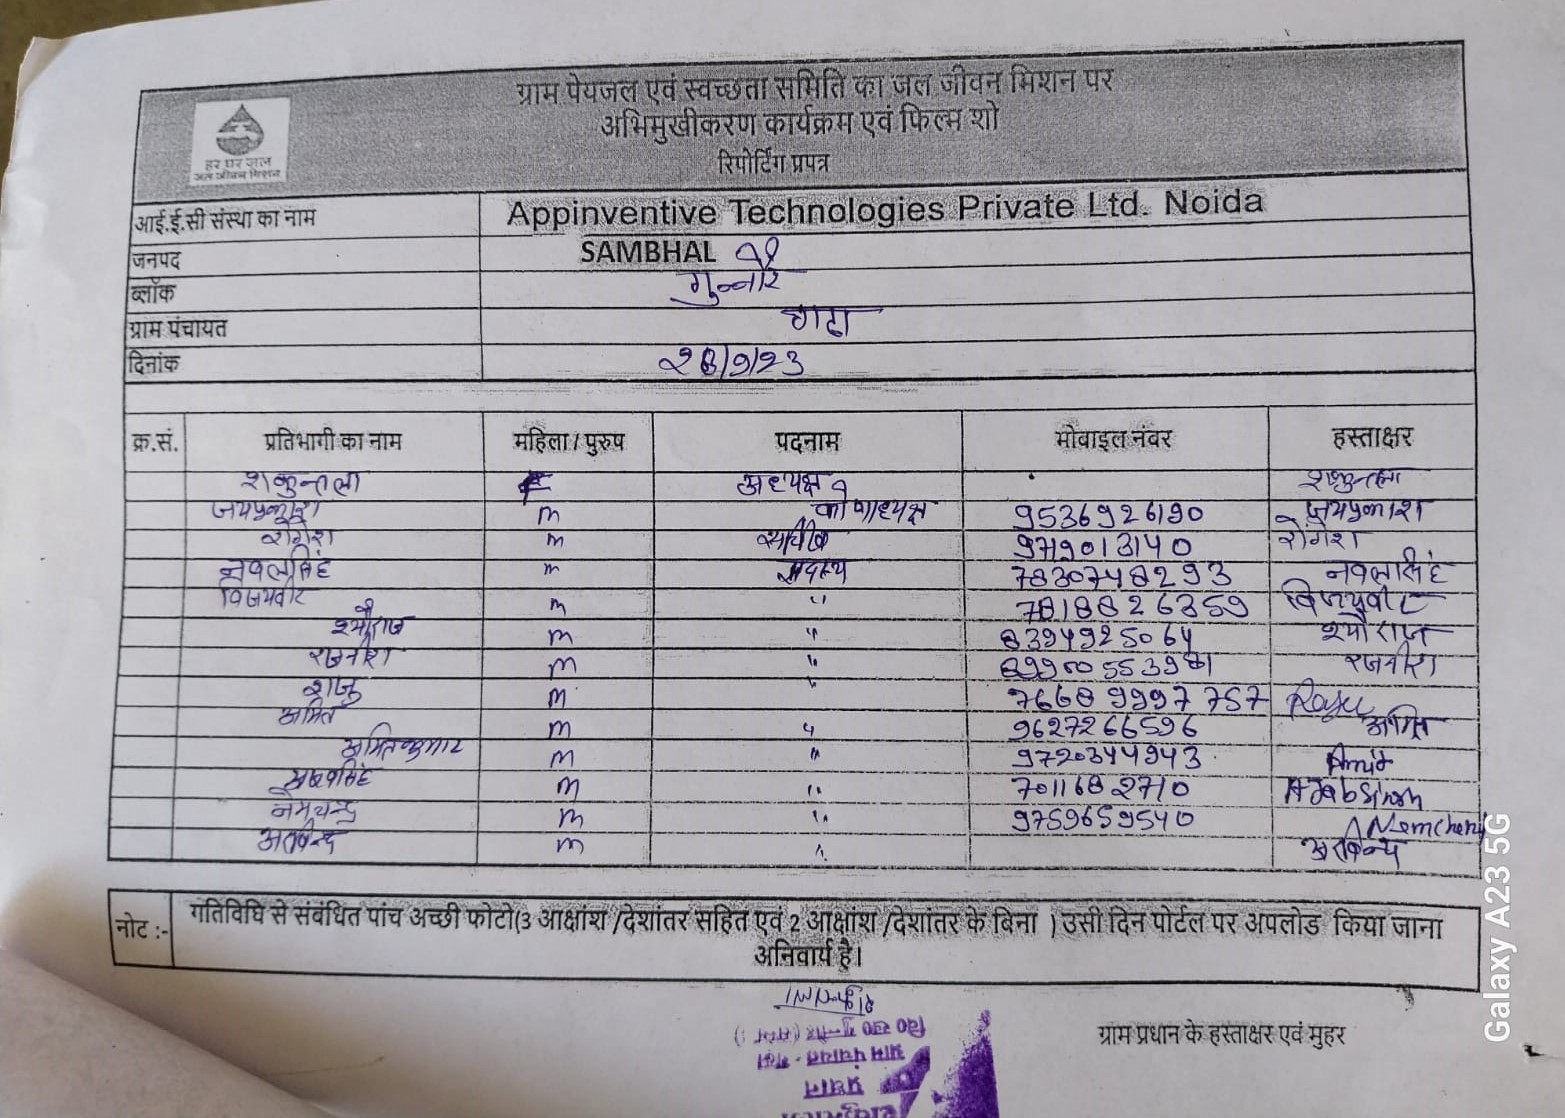 ग्राम पेयजल एवं स्वच्छता समिति का जल जीवन मिशन पर
अभिमुखीकरण कार्यक्रम एवं फिल्म शो
रिपोर्टिंग प्रपत्र
हर घर जल
जल जीवन मिशन
आई.ई.सी संस्था का नाम Appinventive Technologies Private Ltd. Noida
जनपद SAMBHAL
ब्लॉक गुन्नौर
ग्राम पंचायत
दिनांक 28/9/23
क्र.सं. प्रतिभागी का नाम महिला / पुरुष पदनाम मोबाइल नंबर हस्ताक्षर
शकुन्तला F अध्यक्ष शकुन्तला
जयप्रकाश m कोषाध्यक्ष 9536926190 जयप्रकाश
योगेश m 9719013140 योगेश
नवलसिंह m सदस्य 7830748293 नवलसिंह
विजयवीर m " 7818826359 विजयवीर
श्यौराज m " 8394925064 श्यौराज
रजनीश m " रजनीश
राजू m " 7668 9997 757 Raju
अमित m " 9627266596 अमित
अमितकुमार m " 9720344943 Amit
m " 7011682710 AJab Singh
नेमचन्द्र m " 9759659540 Nemchand
m "
नोट :- गतिविधि से संबंधित पांच अच्छी फोटो(3 आक्षांश /देशांतर सहित एवं 2 आक्षांश /देशांतर के बिना ) उसी दिन पोर्टल पर अपलोड किया जाना
अनिवार्य है।
शकुन्तला
ग्राम प्रधान के हस्ताक्षर एवं मुहर
प्रधान
Galaxy A23 5G